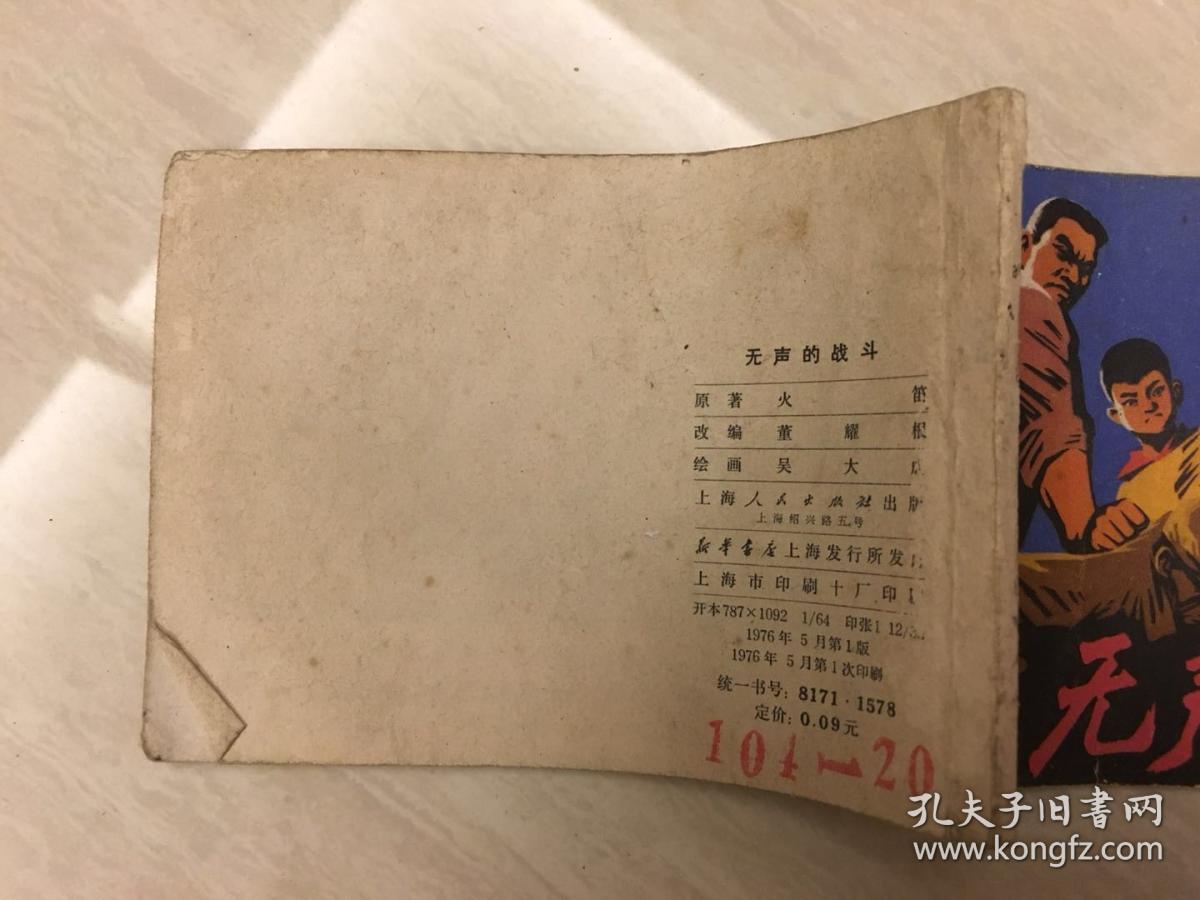 无声的战斗
原著 火笛
改编 董耀根
绘画 吴大
上海人民出版社出版
上海绍兴路五号
新华书店上海发行所发行
上海市印刷十厂印
开本787×1092 1/64 印张1 12/32
1976年5月第1版
1976年5月第1次印刷
统一书号：8171·1578
定价：0.09元
104-20
无声
孔夫子旧书网
www.kongfz.com